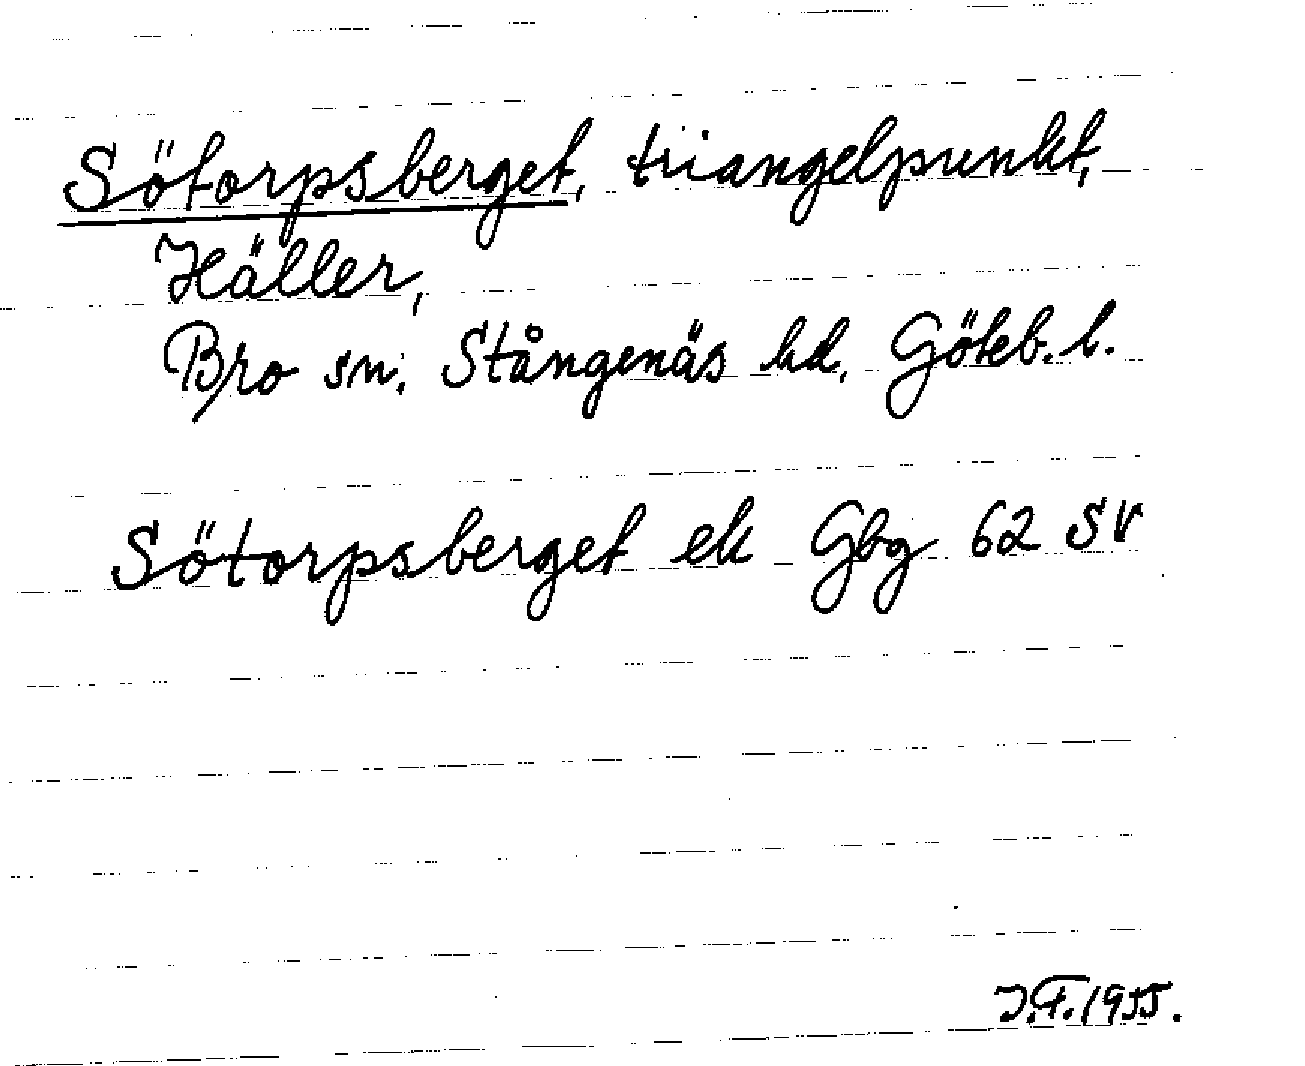 Sötorpsberget, triangelpunkt,
Häller,
Bro sn, Stångenäs hd, Göteb. l.
Sötorpsberget ek Gbg 62 SV
J.F.1955.